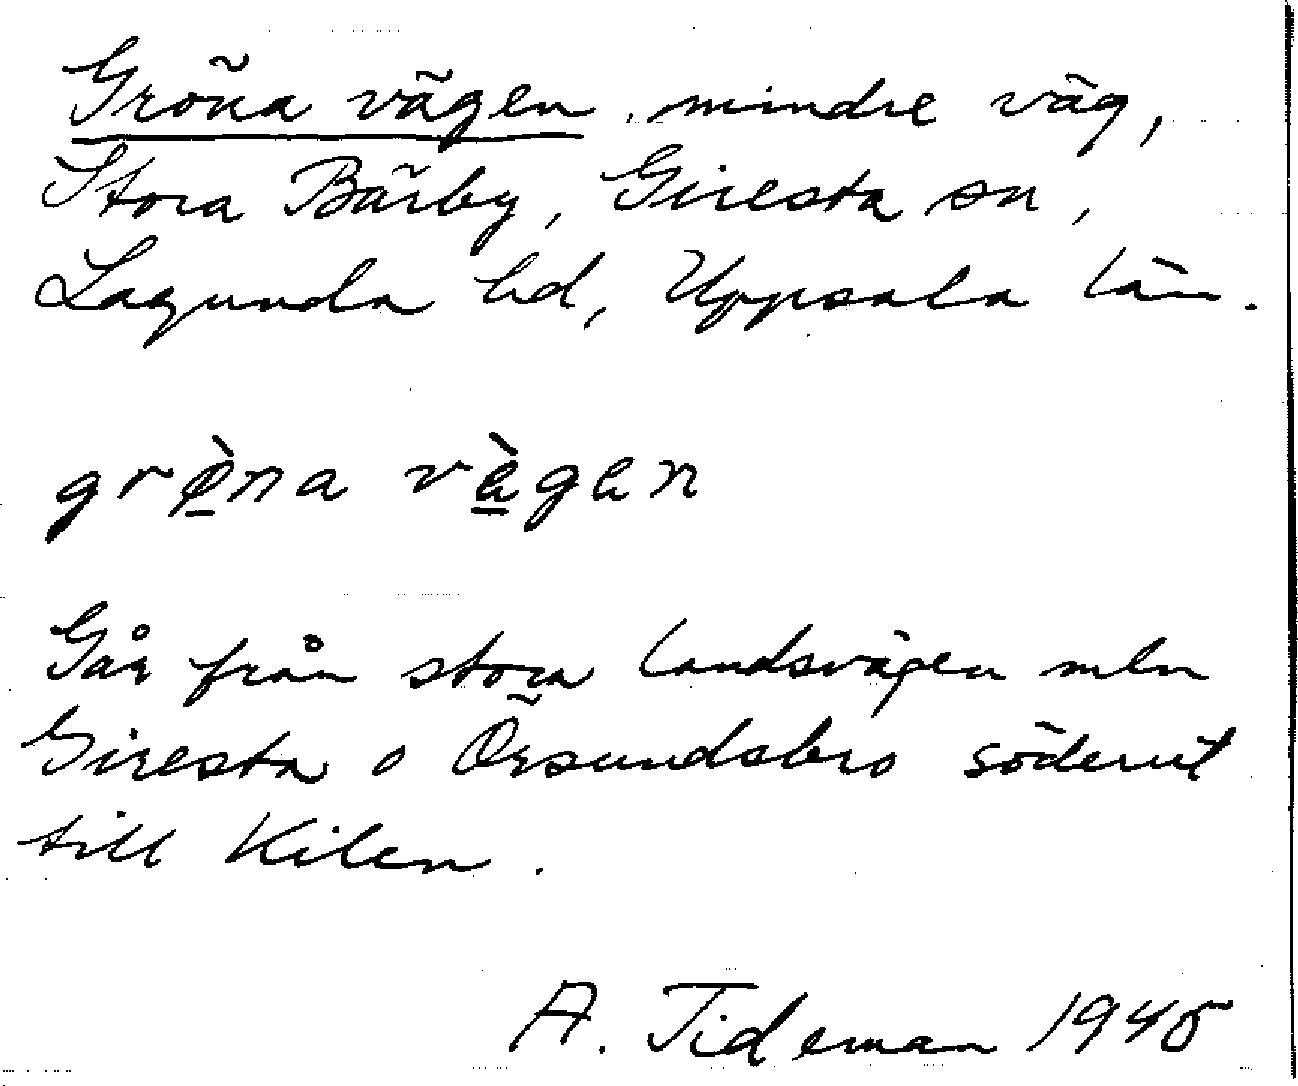 Gröna vägen, mindre väg,
Stora Bärby, Giresta sn,
Lagunda hd, Uppsala län.
grø̱̀na væ̱̀gən
Går från stora landsvägen mln
Giresta o Örsundsbro söderut
till Kilen.
A. Tideman 1945